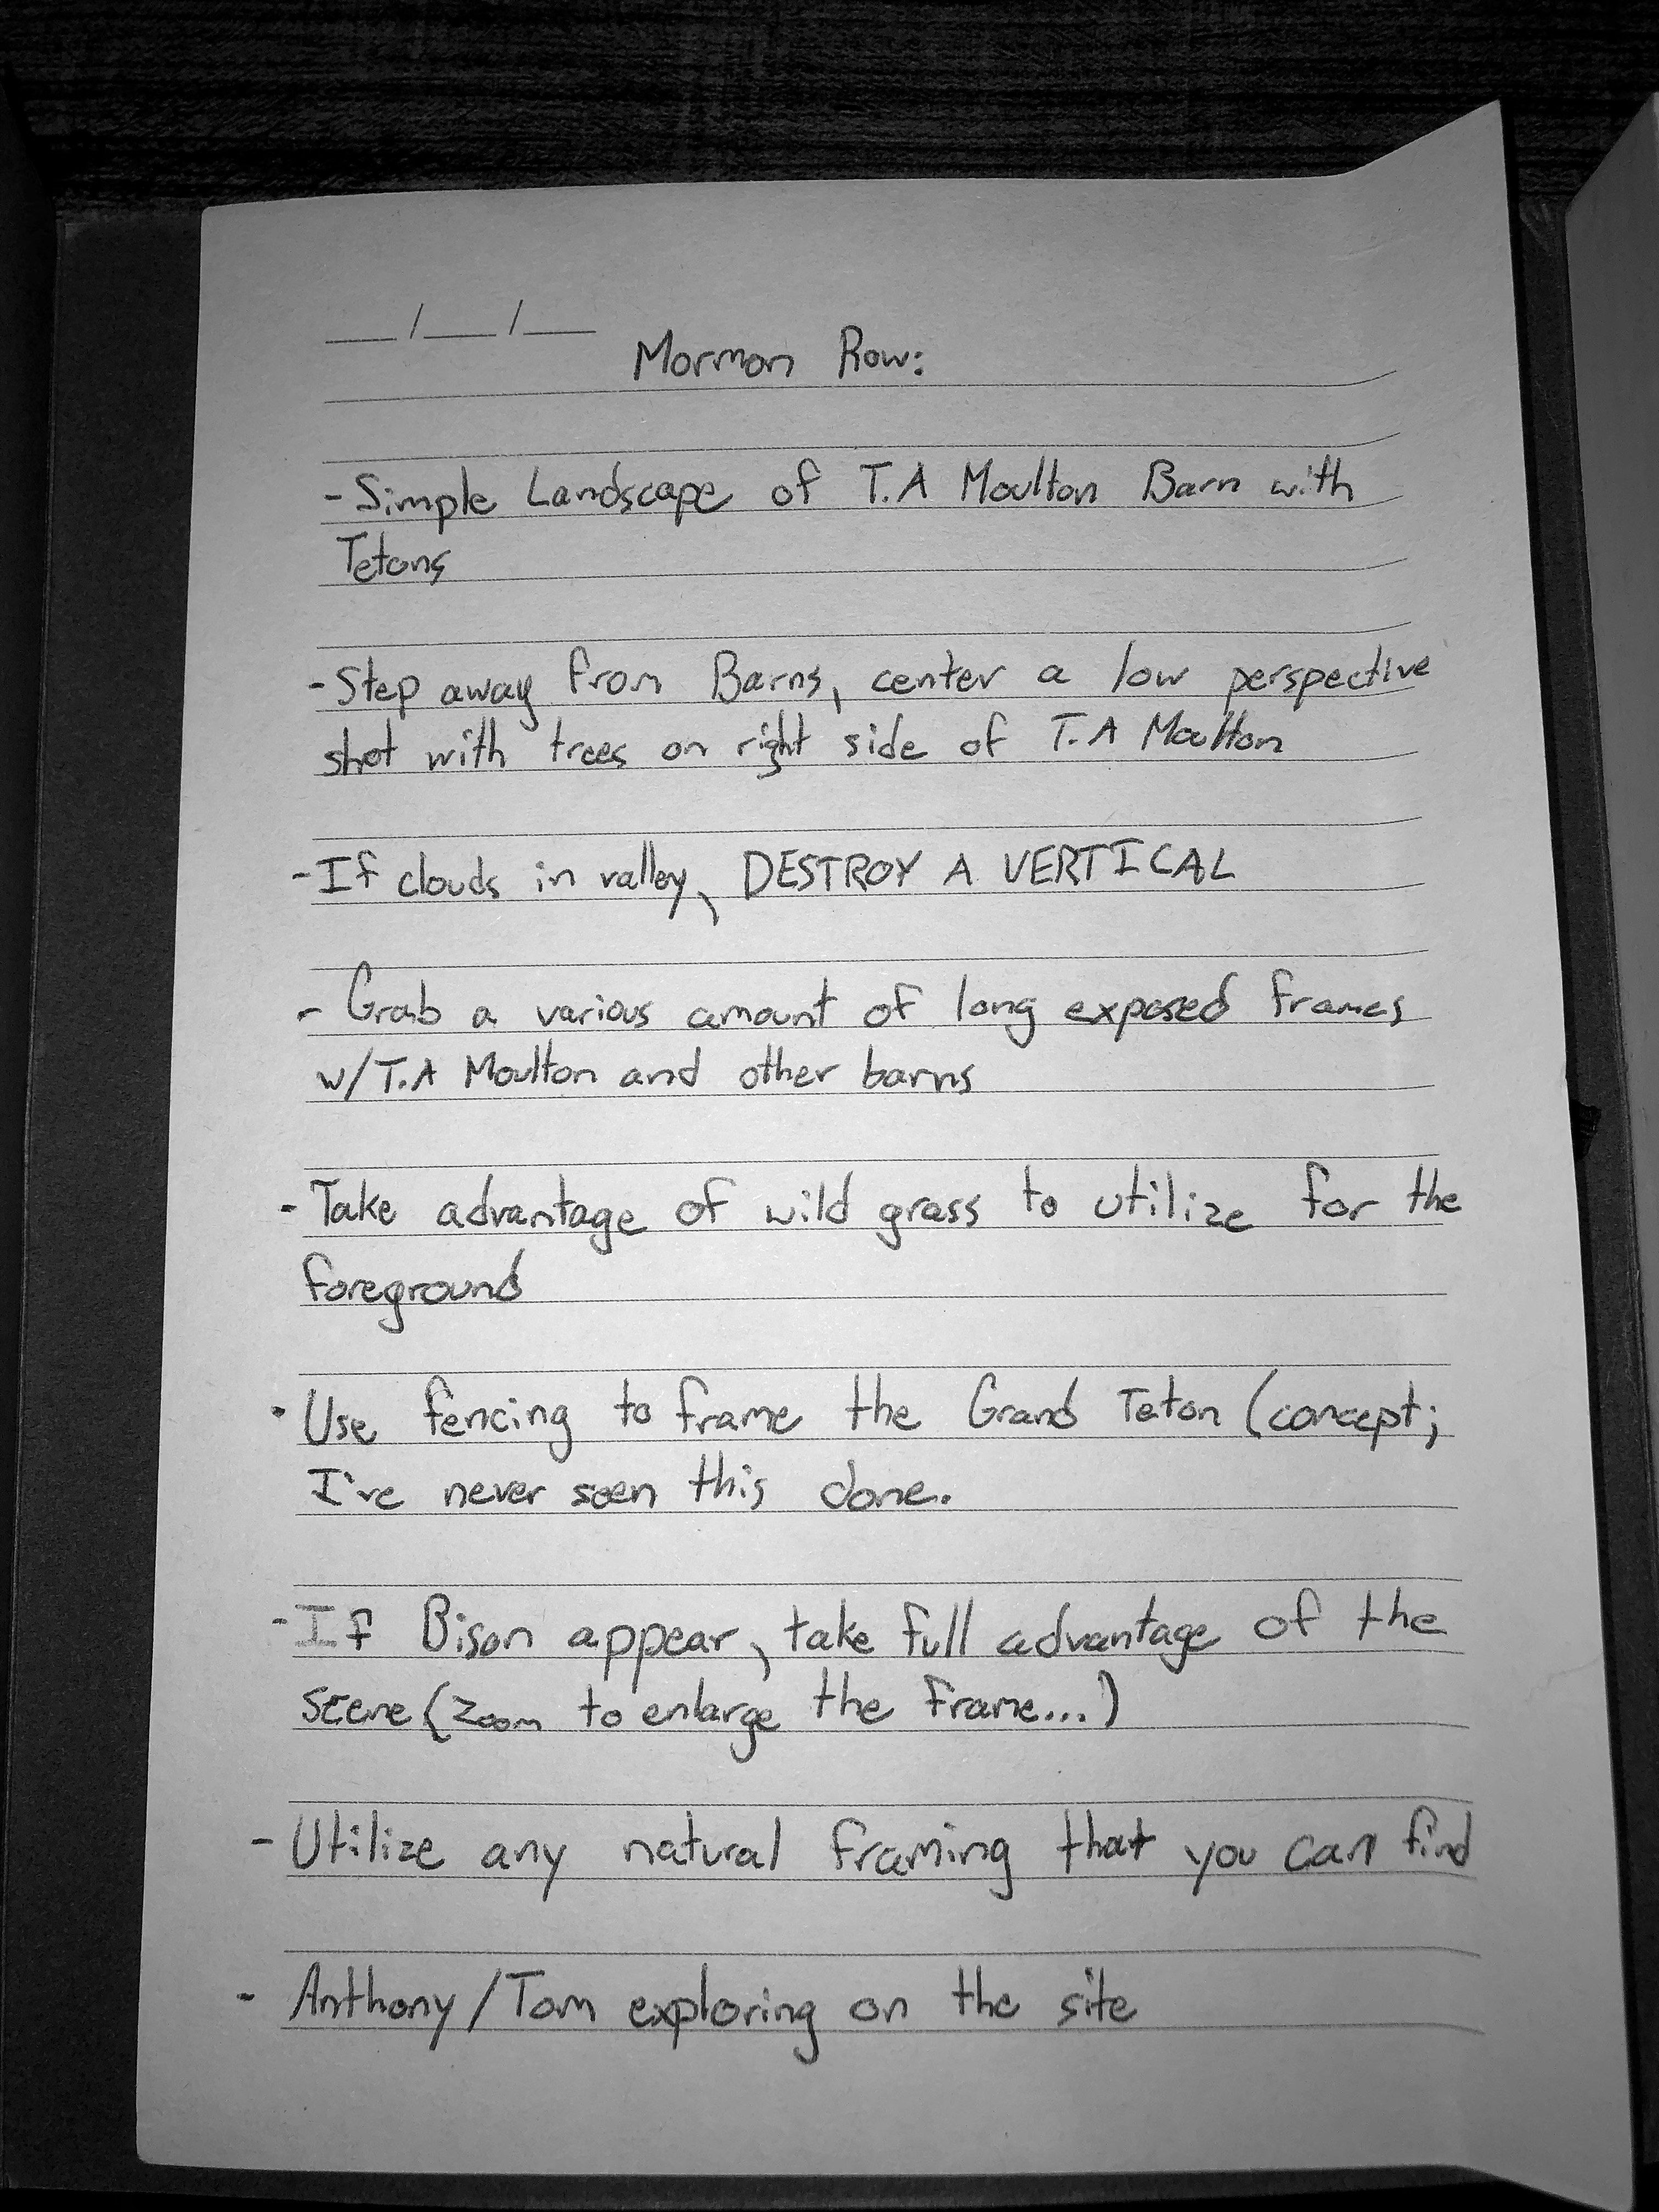 __/__/__
Mormon Row:
-Simple Landscape of T.A Moulton Barn with
Tetons
-Step away from Barns, center a low perspective
shot with trees on right side of T.A Moulton
-If clouds in valley, DESTROY A VERTICAL
- Grab a various amount of long exposed frames
w/T.A Moulton and other barns
-Take advantage of wild grass to utilize for the
foreground
·Use fencing to frame the Grand Teton (concept;
I've never seen this done.
-If Bison appear, take full advantage of the
scene (zoom to enlarge the frame...)
-Utilize any natural framing that you can find
- Anthony/Tom exploring on the site